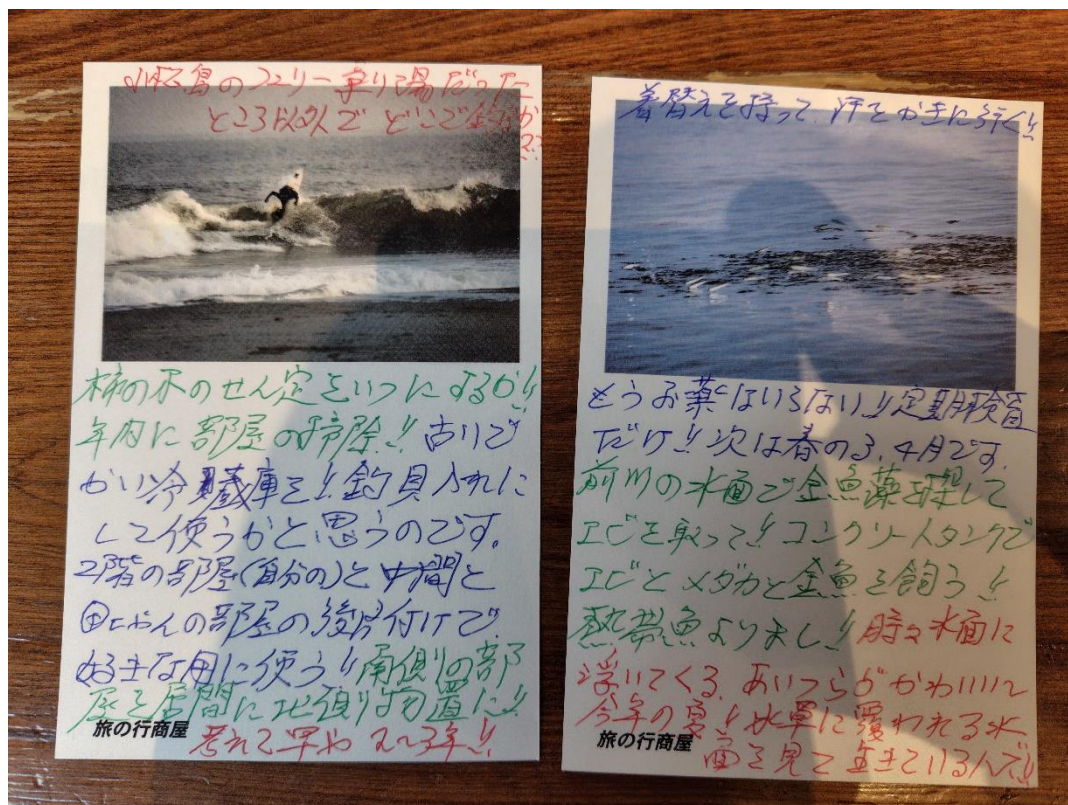 小豆島のフェリー乗り場だった
ところ以外で どこで
柿の木のせん定をいつにするか!!
年内に部屋の掃除!! 古いで
かい冷蔵庫を!! 釣具入れに
して使うかと思うのです。
2階の部屋(自分の)と中間と
ちゃんの部屋の後片付けで
好きな用に使う!! 南側の部
屋を居間に北側は物置に!!
旅の行商屋
考えて早や 2〜3年!!
着替えを持って、汗をかきに行く!!
もうお薬はいらない!! 定期検査
だけ!! 次は春の3、4月です。
前川の水面で金魚藻を探して
エビを取って!! コンクリートタンクで
エビとメダカと金魚を飼う!!
熱帯魚よりまし!! 時々水面に
浮いてくる。あいつらがかわいい〜
今年の夏!! 水草に覆われる水
旅の行商屋
面を見て生きているんで!!